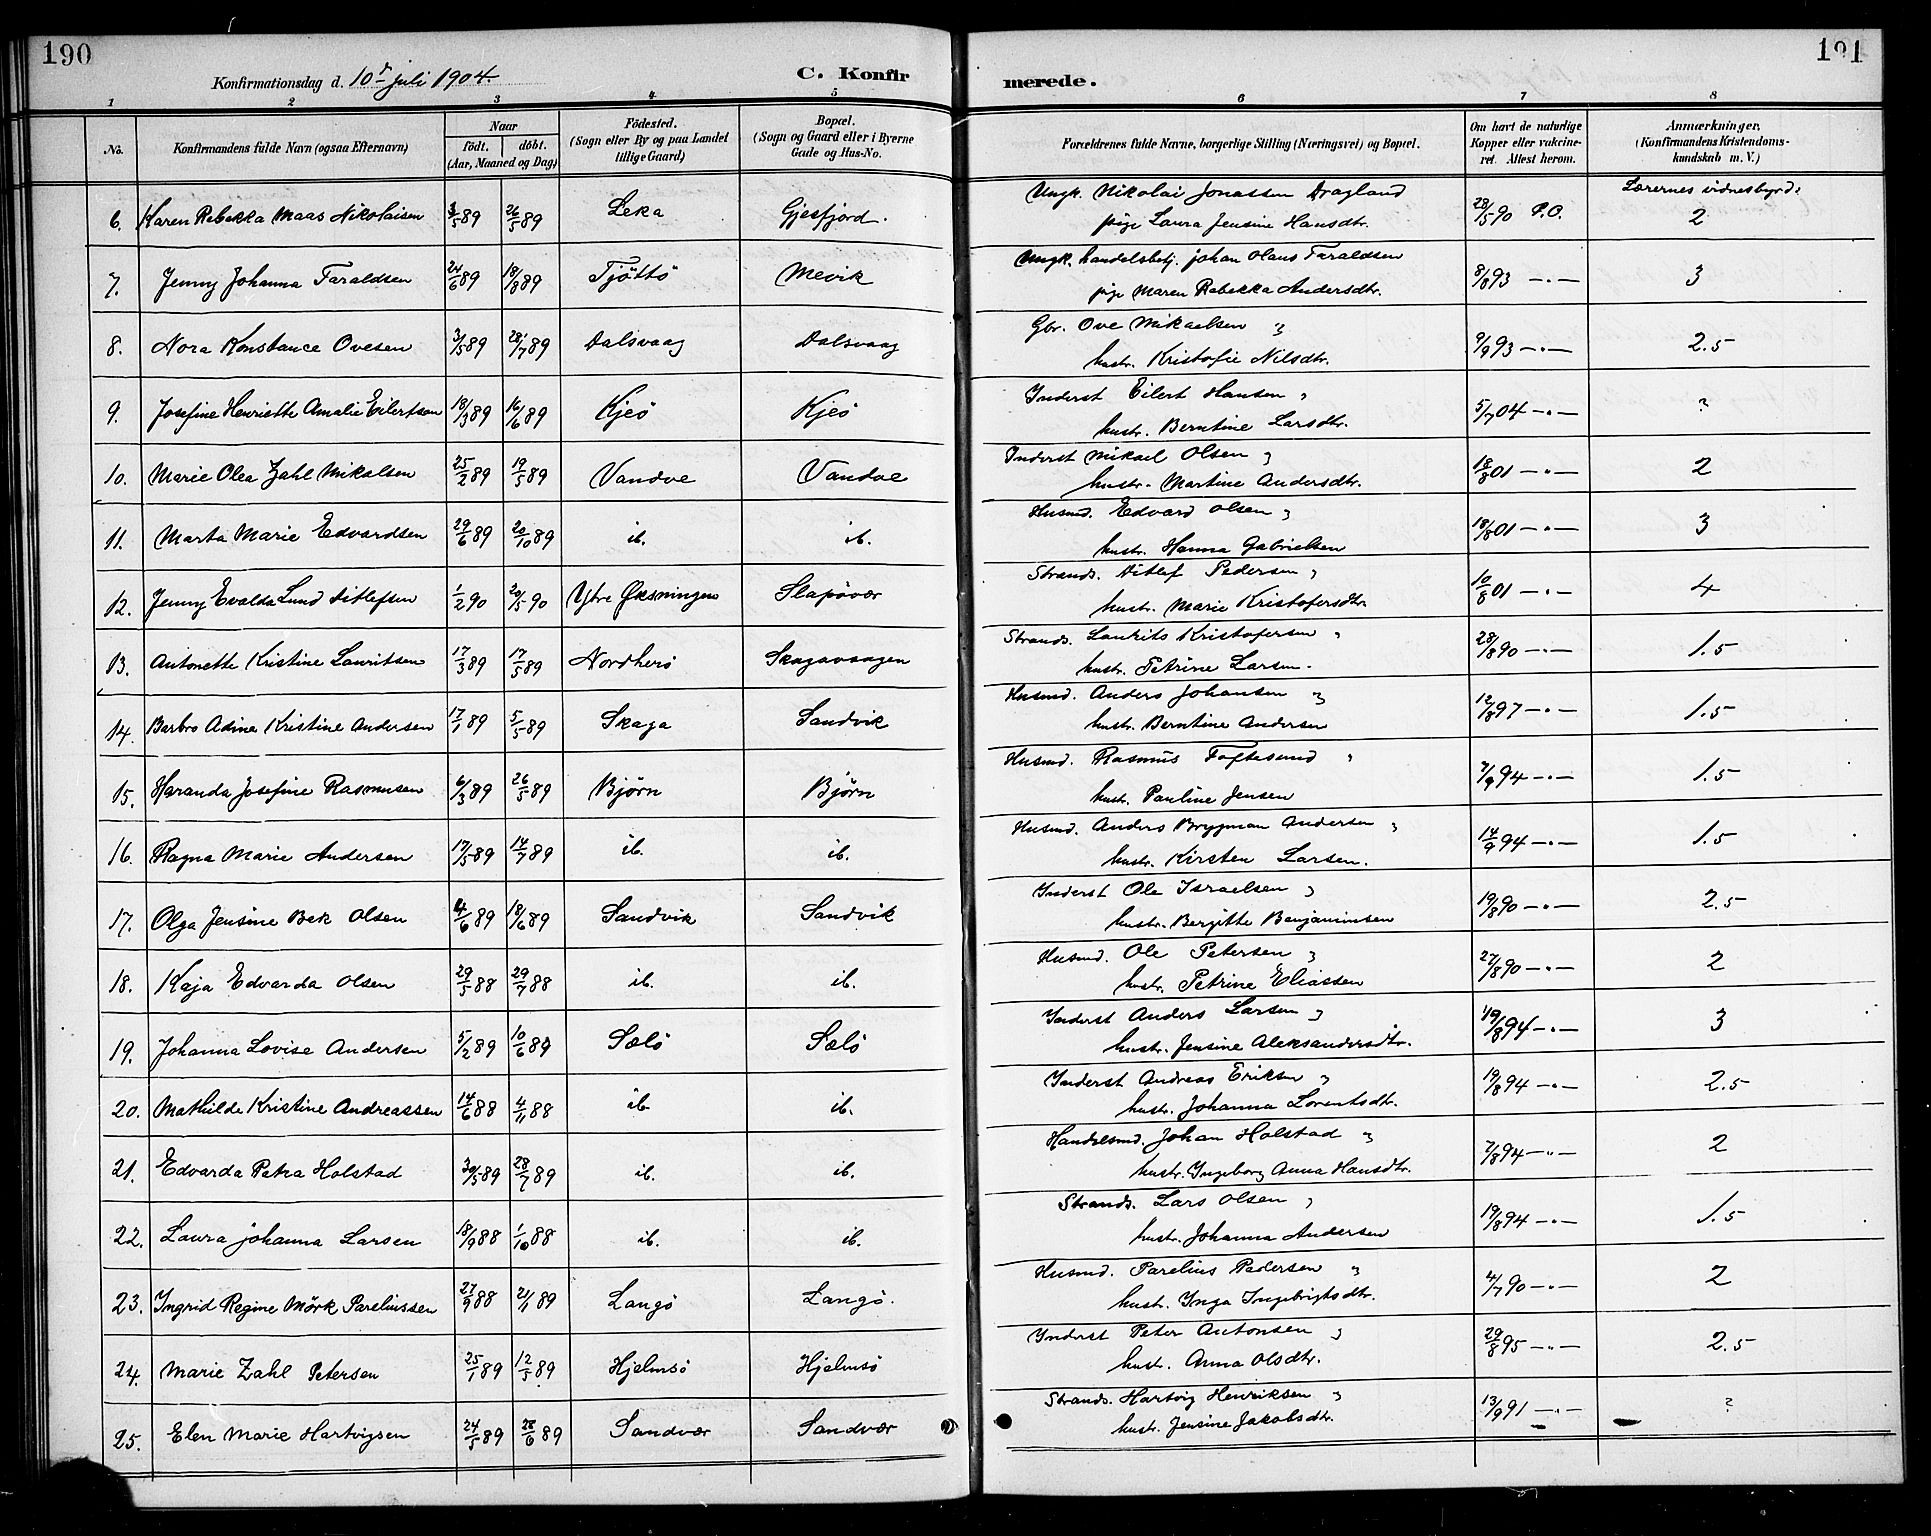 190
191
Konfirmationsdag d. 10de juli 1904.
C. Konfir
merede.
1 2 3 4 5
6 7 8
No.
Konfirmandens fulde Navn (ogsaa Efternavn)
Naar
födt. döbt.
(Aar, Maaned og Dag)
Födested.
(Sogn eller By og paa Landet
tillige Gaard)
Bopæl.
(Sogn og Gaard eller i Byerne
Gade og Hus-No.
Forældrenes fulde Navne, borgerlige Stilling (Næringsvei) og Bopæl.
Om havt de naturlige
Kopper eller vakcine-
ret. Attest herom.
Anmærkninger,
(Konfirmandens Kristendoms-
kundskab m. V.)
Lærernes vidnesbyrd:
6. Karen Rebekka Maas Nikolaisen 3/5 89 26/5 89 Leka Gjesfjord.
Ungk. Nikolai Jonassen Dragland
pige Laura Jensine Hansdtr. 28/5 90 P.O. 2
7. Jenny Johanna Taraldsen 24/6 89 18/8 89 Tjöttö Mevik
Ungk. handelsbetj. Johan Olaus Taraldsen
pige Maren Rebekka Andersdtr. 8/8 93 —"— 3
8. Nora Konstance Ovesen 3/5 89 28/7 89 Dalsvaag Dalsvaag
Gbr. Ove Mikaelsen "
hustr. Kristofie Nilsdtr. 9/9 93 —"— 2.5
9. Josefine Henriette Amalie Eilertsen 18/3 89 16/6 89 Kjeö Kjeö
Inderst Eilert Hansen "
hustr. Berntine Larsdtr. 5/7 04 —"— ?
10. Marie Olea Zahl Mikalsen 25/2 89 19/5 89 Vandve Vandve
Inderst Mikael Olsen "
hustr. Martine Andersdtr. 18/8 01 —"— 2
11. Marta Marie Edvardsen 29/6 89 20/10 89 ib. ib.
Husmd. Edvard Olsen "
hustr. Hanna Gabrielsen 18/8 01 —"— 3
12. Jenny Evalda Lund Ditlefsen 1/2 90 20/5 90 Ytre Øksningen Slapövær
Strands. Ditlef Pedersen "
hustr. Marie Kristofersdtr. 10/8 01 —"— 4
13. Antonette Kristine Lauritsen 17/3 89 17/5 89 Nordherö Skagavaagen
Strands. Laurits Kristofersen "
hustr. Petrine Larsen. 28/8 90 —"— 1.5
14. Barbro Adine Kristine Andersen 17/1 89 5/5 89 Skaga Sandvik
Husmd. Anders Johansen "
hustr. Berntine Andersen 12/8 97 —"— 1.5
15. Haranda Josefine Rasmusen 6/3 89 26/5 89 Björn Björn
Husmd. Rasmus Toftesund "
hustr. Pauline Jensen 7/9 94 —"— 1.5
16. Ragna Marie Andersen 17/5 89 14/7 89 ib. ib.
Husmd. Anders Brygman Andersen "
hustr. Kirsten Larsen. 14/9 94 —"— 1.5
17. Olga Jensine Bek Olsen 4/6 89 18/6 89 Sandvik Sandvik
Inderst Ole Israelsen "
hustr. Bergitte Benjaminsen 19/8 90 —"— 2.5
18. Kaja Edvarda Olsen 29/5 88 29/7 88 ib. ib.
Husmd. Ole Petersen "
hustr. Petrine Eliassen 27/8 90 —"— 2
19. Johanna Lovise Andersen 5/2 89 10/6 89 Sælö Sælö
Inderst Anders Larsen "
hustr. Jensine Aleksandersdtr. 19/8 94 —"— 3
20. Mathilde Kristine Andreassen 14/6 88 4/11 88 ib. ib.
Inderst Andreas Eriksen "
hustr. Johanna Lorentsdtr. 19/8 94 —"— 2.5
21. Edvarda Petra Holstad 30/5 89 28/7 89 ib. ib.
Handelsmd. Johan Holstad "
hustr. Ingeborg Anna Hansdtr. 7/8 94 —"— 2
22. Laura Johanna Larsen 18/9 88 1/10 88 ib. ib.
Strands. Lars Olsen "
hustr. Johanna Andersen 19/8 94 —"— 1.5
23. Ingrid Regine Mörk Pareliussen 27/9 88 21/1 89 Langö Langö.
Husmd. Parelius Pedersen "
hustr. Inga Ingebrigtsdtr. 4/7 90 —"— 2
24. Marie Zahl Petersen 25/1 89 12/5 89 Hjelmsö Hjelmsö
Inderst Peter Antonsen "
hustr. Anna Olsdtr. 29/8 95 —"— 2.5
25. Elen Marie Hartvigsen 24/5 89 28/6 89 Sandvær Sandvær
Strands. Hartvig Henriksen "
hustr. Jensine Jakobsdtr. 13/9 91 —"— ?